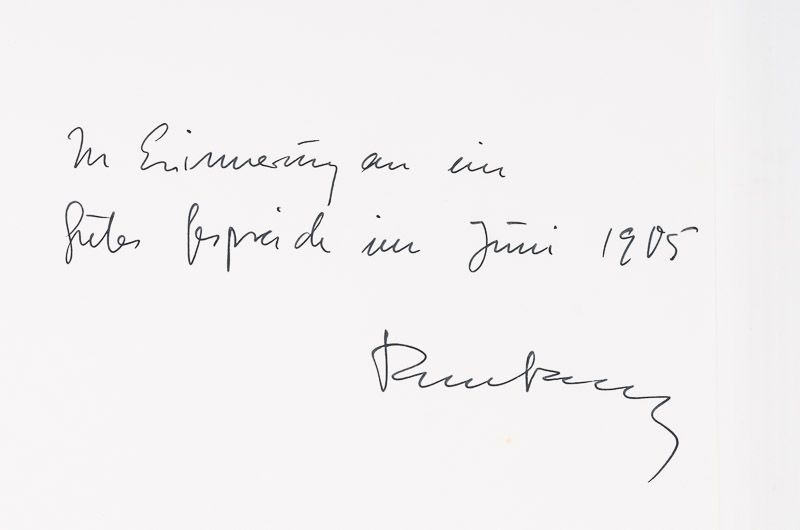 In Erinnerung an ein
gutes Gespräch im Juni 1985